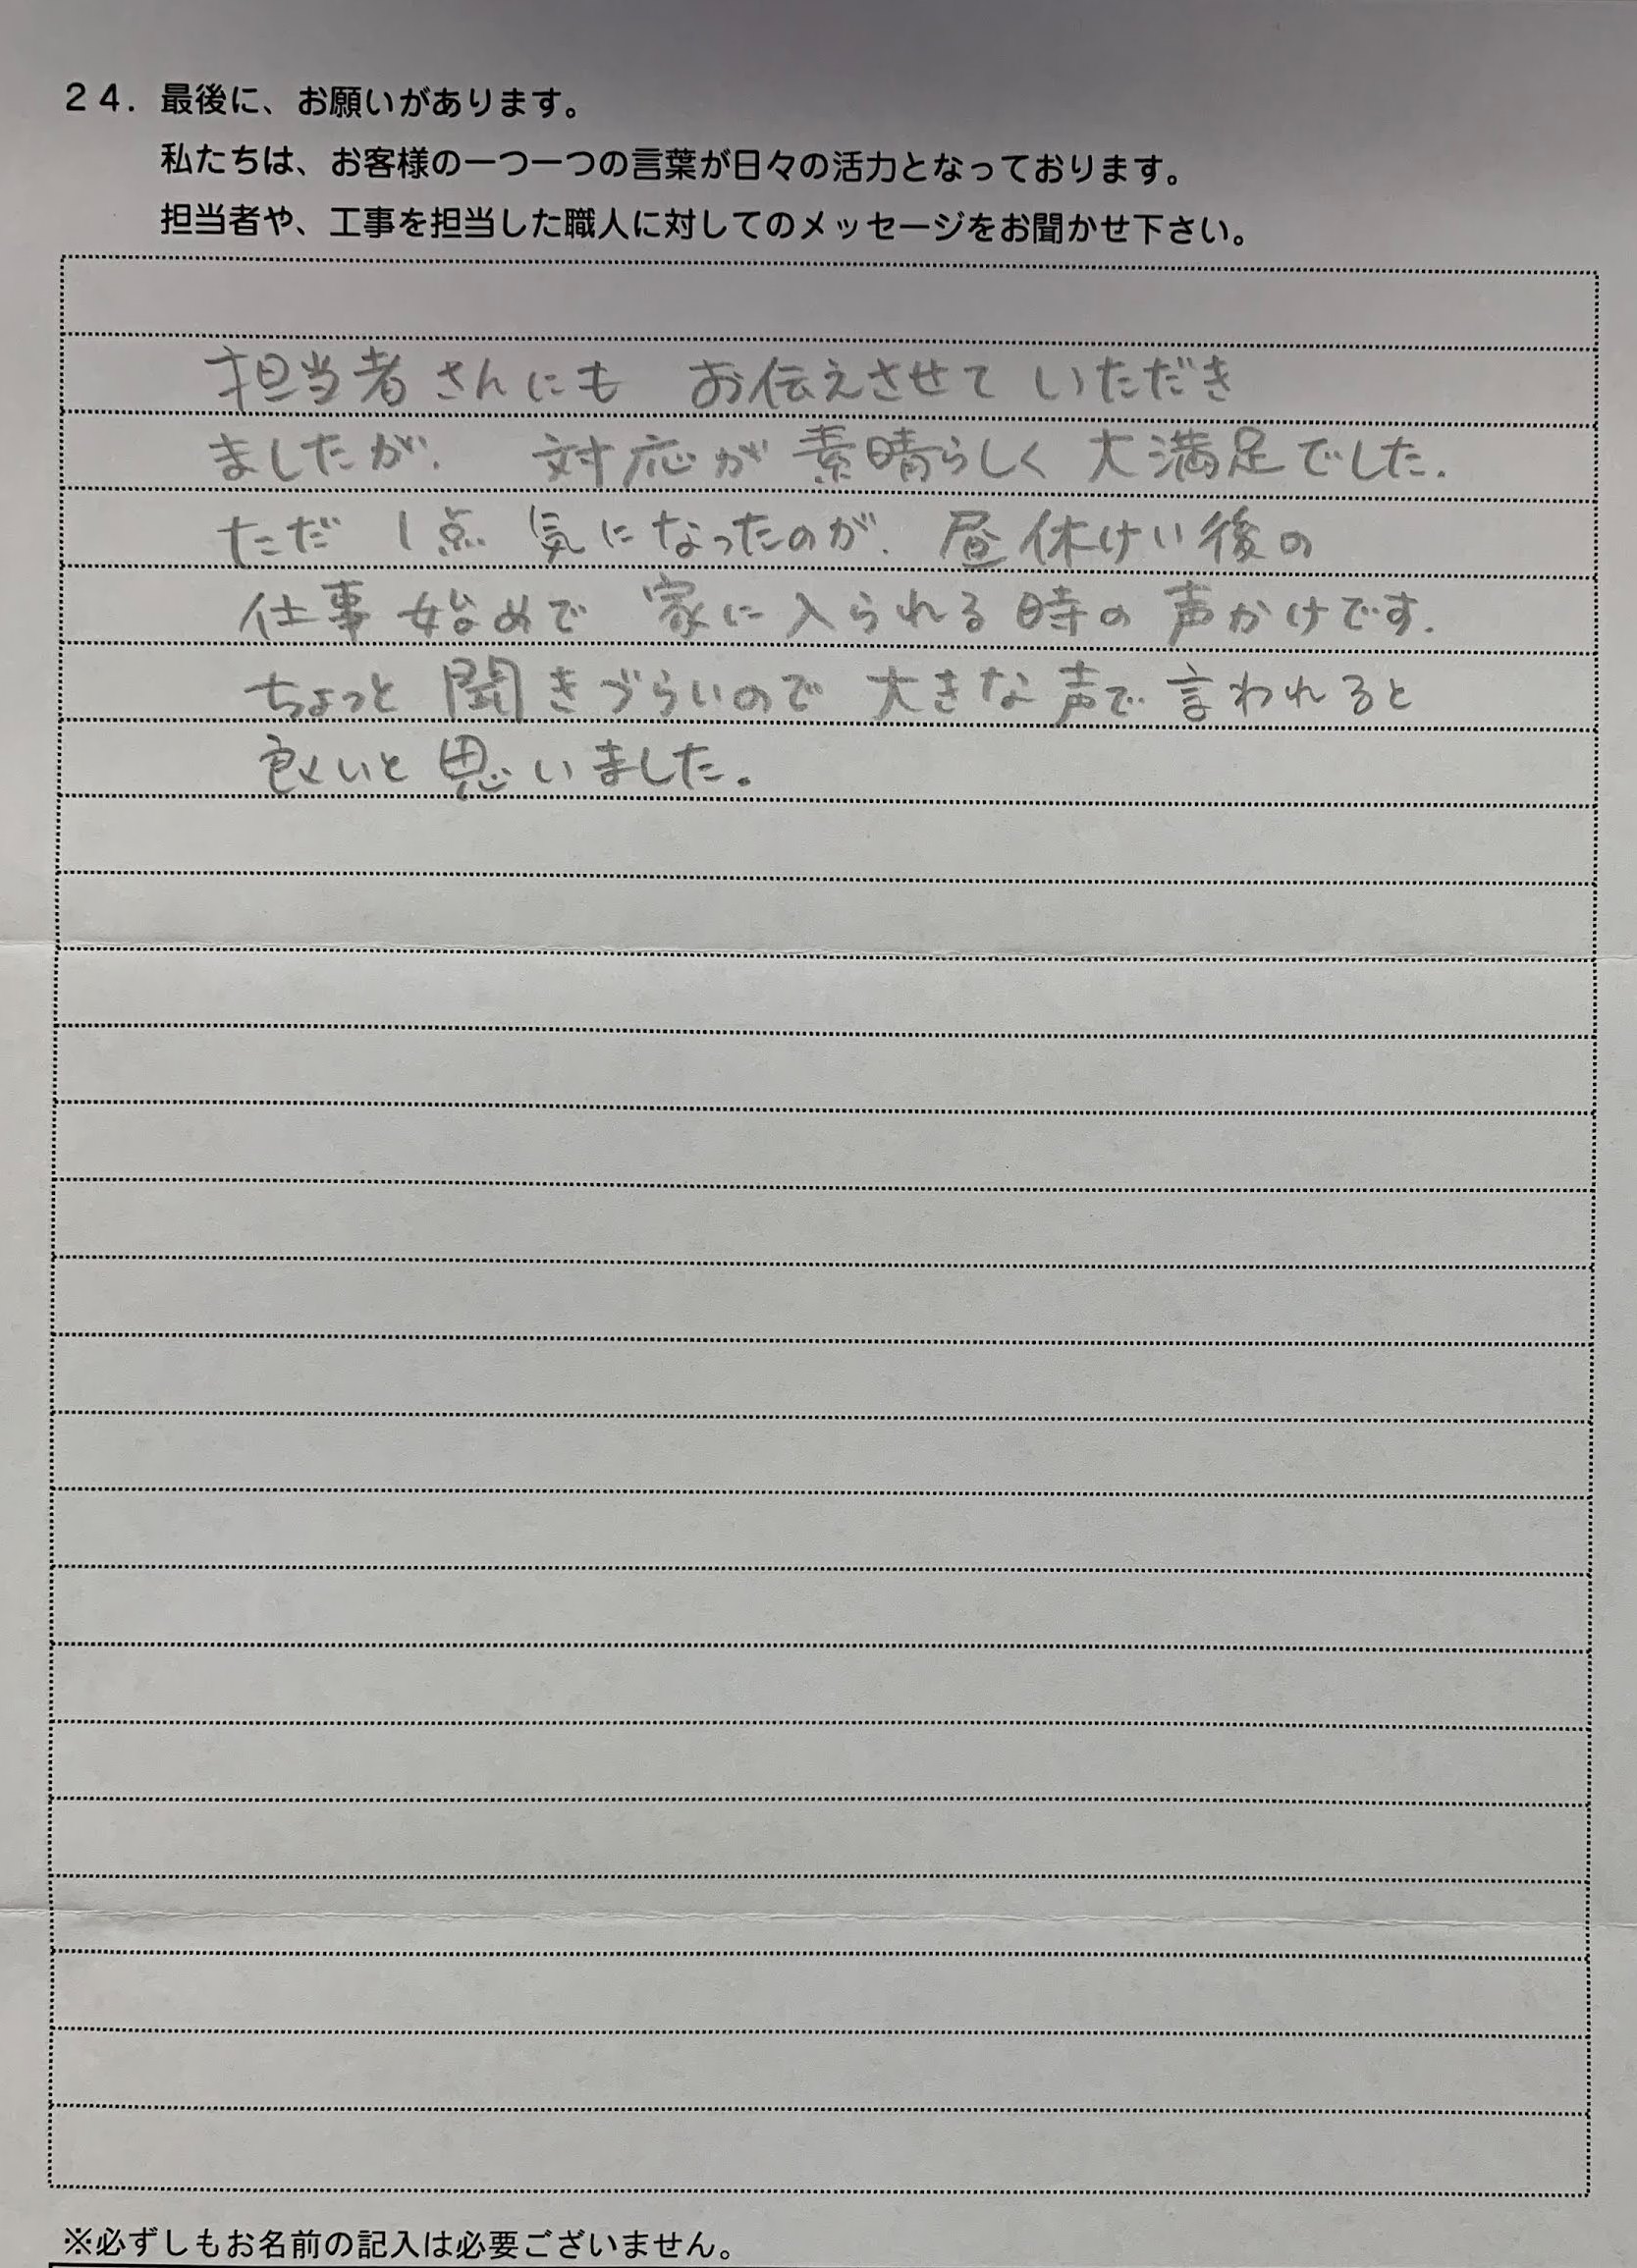 ２４．最後に、お願いがあります。
私たちは、お客様の一つ一つの言葉が日々の活力となっております。
担当者や、工事を担当した職人に対してのメッセージをお聞かせ下さい。
担当者さんにも お伝えさせて いただき
ましたが、 対応が 素晴らしく 大満足でした.
ただ 1点 気になったのが、昼休けい後の
仕事始めで 家に入られる時の声かけです.
ちょっと聞きづらいので 大きな声で言われると
良いと思いました。
※必ずしもお名前の記入は必要ございません。